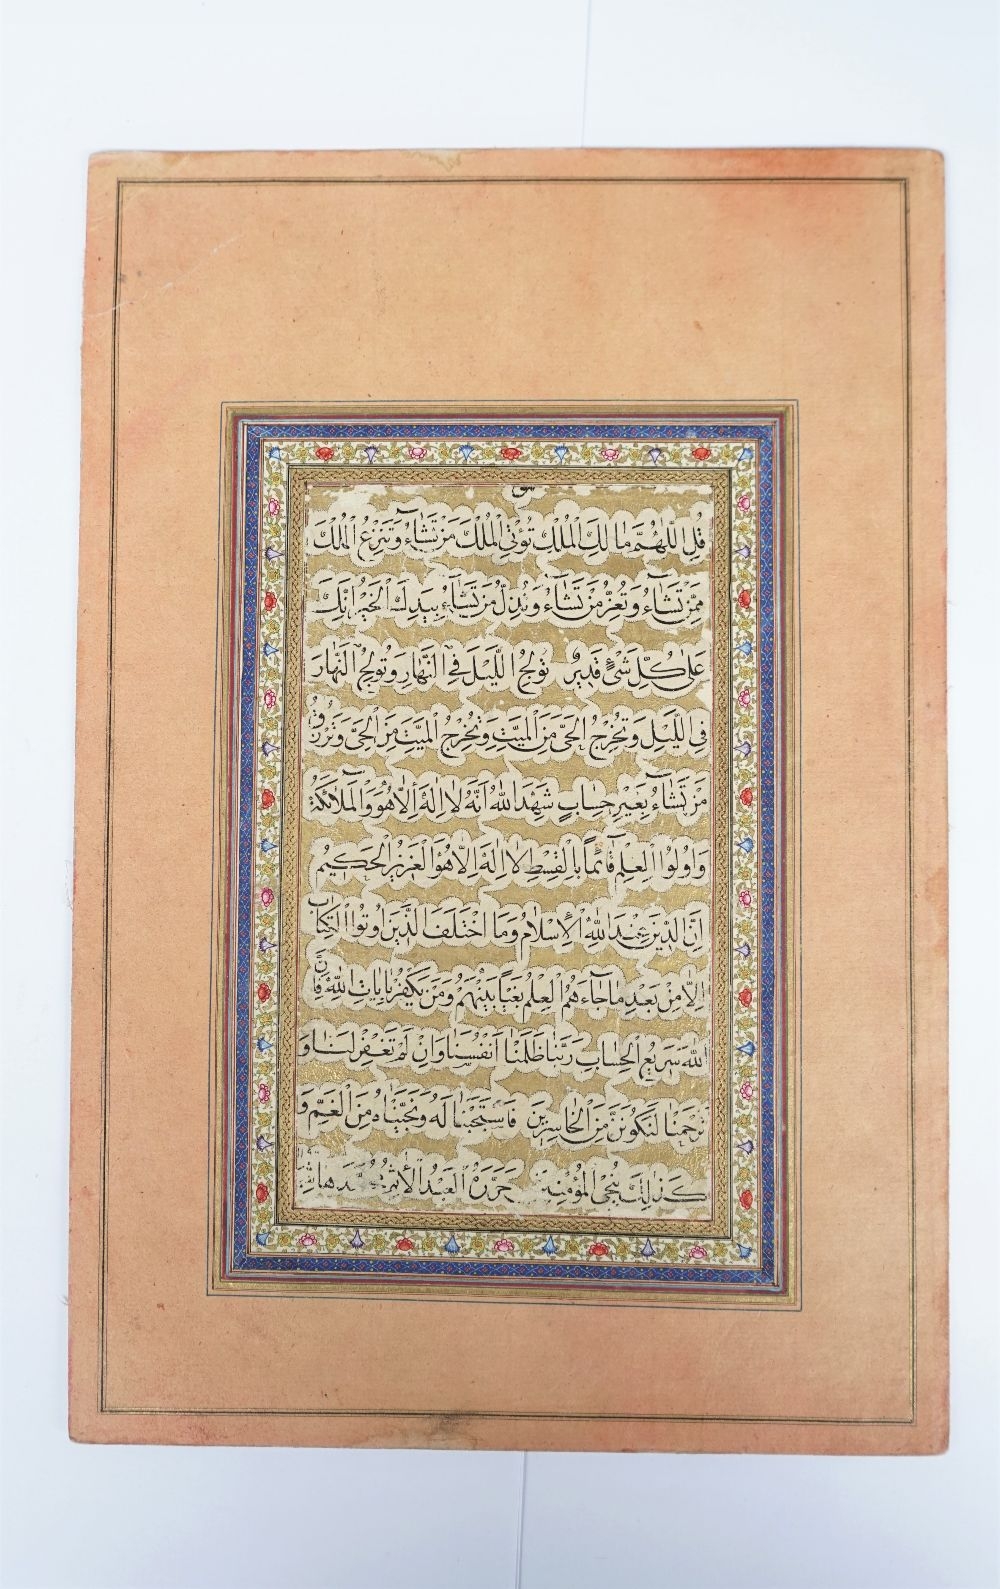 هو
قُلِ اللّٰهُمَّ مَالِكَ الْمُلْكِ تُؤْتِي الْمُلْكَ مَنْ تَشَاۤءُ وَتَنْزِعُ الْمُلْكَ
مِمَّنْ تَشَاۤءُ وَتُعِزُّ مَنْ تَشَاۤءُ وَتُذِلُّ مَنْ تَشَاۤءُ بِيَدِكَ الْخَيْرُ اِنَّكَ
عَلٰى كُلِّ شَيْءٍ قَدِيرٌ تُولِجُ اللَّيْلَ فِي النَّهَارِ وَتُولِجُ النَّهَارَ
فِي اللَّيْلِ وَتُخْرِجُ الْحَيَّ مِنَ الْمَيِّتِ وَتُخْرِجُ الْمَيِّتَ مِنَ الْحَيِّ وَتَرْزُقُ
مَنْ تَشَاۤءُ بِغَيْرِ حِسَابٍ شَهِدَ اللّٰهُ اَنَّهُ لَا اِلٰهَ اِلَّا هُوَ وَالْمَلَاۤئِكَةُ
وَاُولُوا الْعِلْمِ قَاۤئِمًا بِالْقِسْطِ لَا اِلٰهَ اِلَّا هُوَ الْعَزِيزُ الْحَكِيمُ
اِنَّ الدِّينَ عِنْدَ اللّٰهِ الْاِسْلَامُ وَمَا اخْتَلَفَ الَّذِينَ اُوتُوا الْكِتَابَ
اِلَّا مِنْ بَعْدِ مَا جَاۤءَهُمُ الْعِلْمُ بَغْيًا بَيْنَهُمْ وَمَنْ يَكْفُرْ بِاٰيَاتِ اللّٰهِ فَاِنَّ
اللّٰهَ سَرِيعُ الْحِسَابِ رَبَّنَا ظَلَمْنَا اَنْفُسَنَا وَاِنْ لَمْ تَغْفِرْ لَنَا وَ
تَرْحَمْنَا لَنَكُونَنَّ مِنَ الْخَاسِرِينَ فَاسْتَجَبْنَا لَهُ وَنَجَّيْنَاهُ مِنَ الْغَمِّ وَ
كَذٰلِكَ نُنْجِي الْمُؤْمِنِينَ حَرَّرَهُ الْعَبْدُ الْاَثِمُ مُحَمَّد هَاشِم